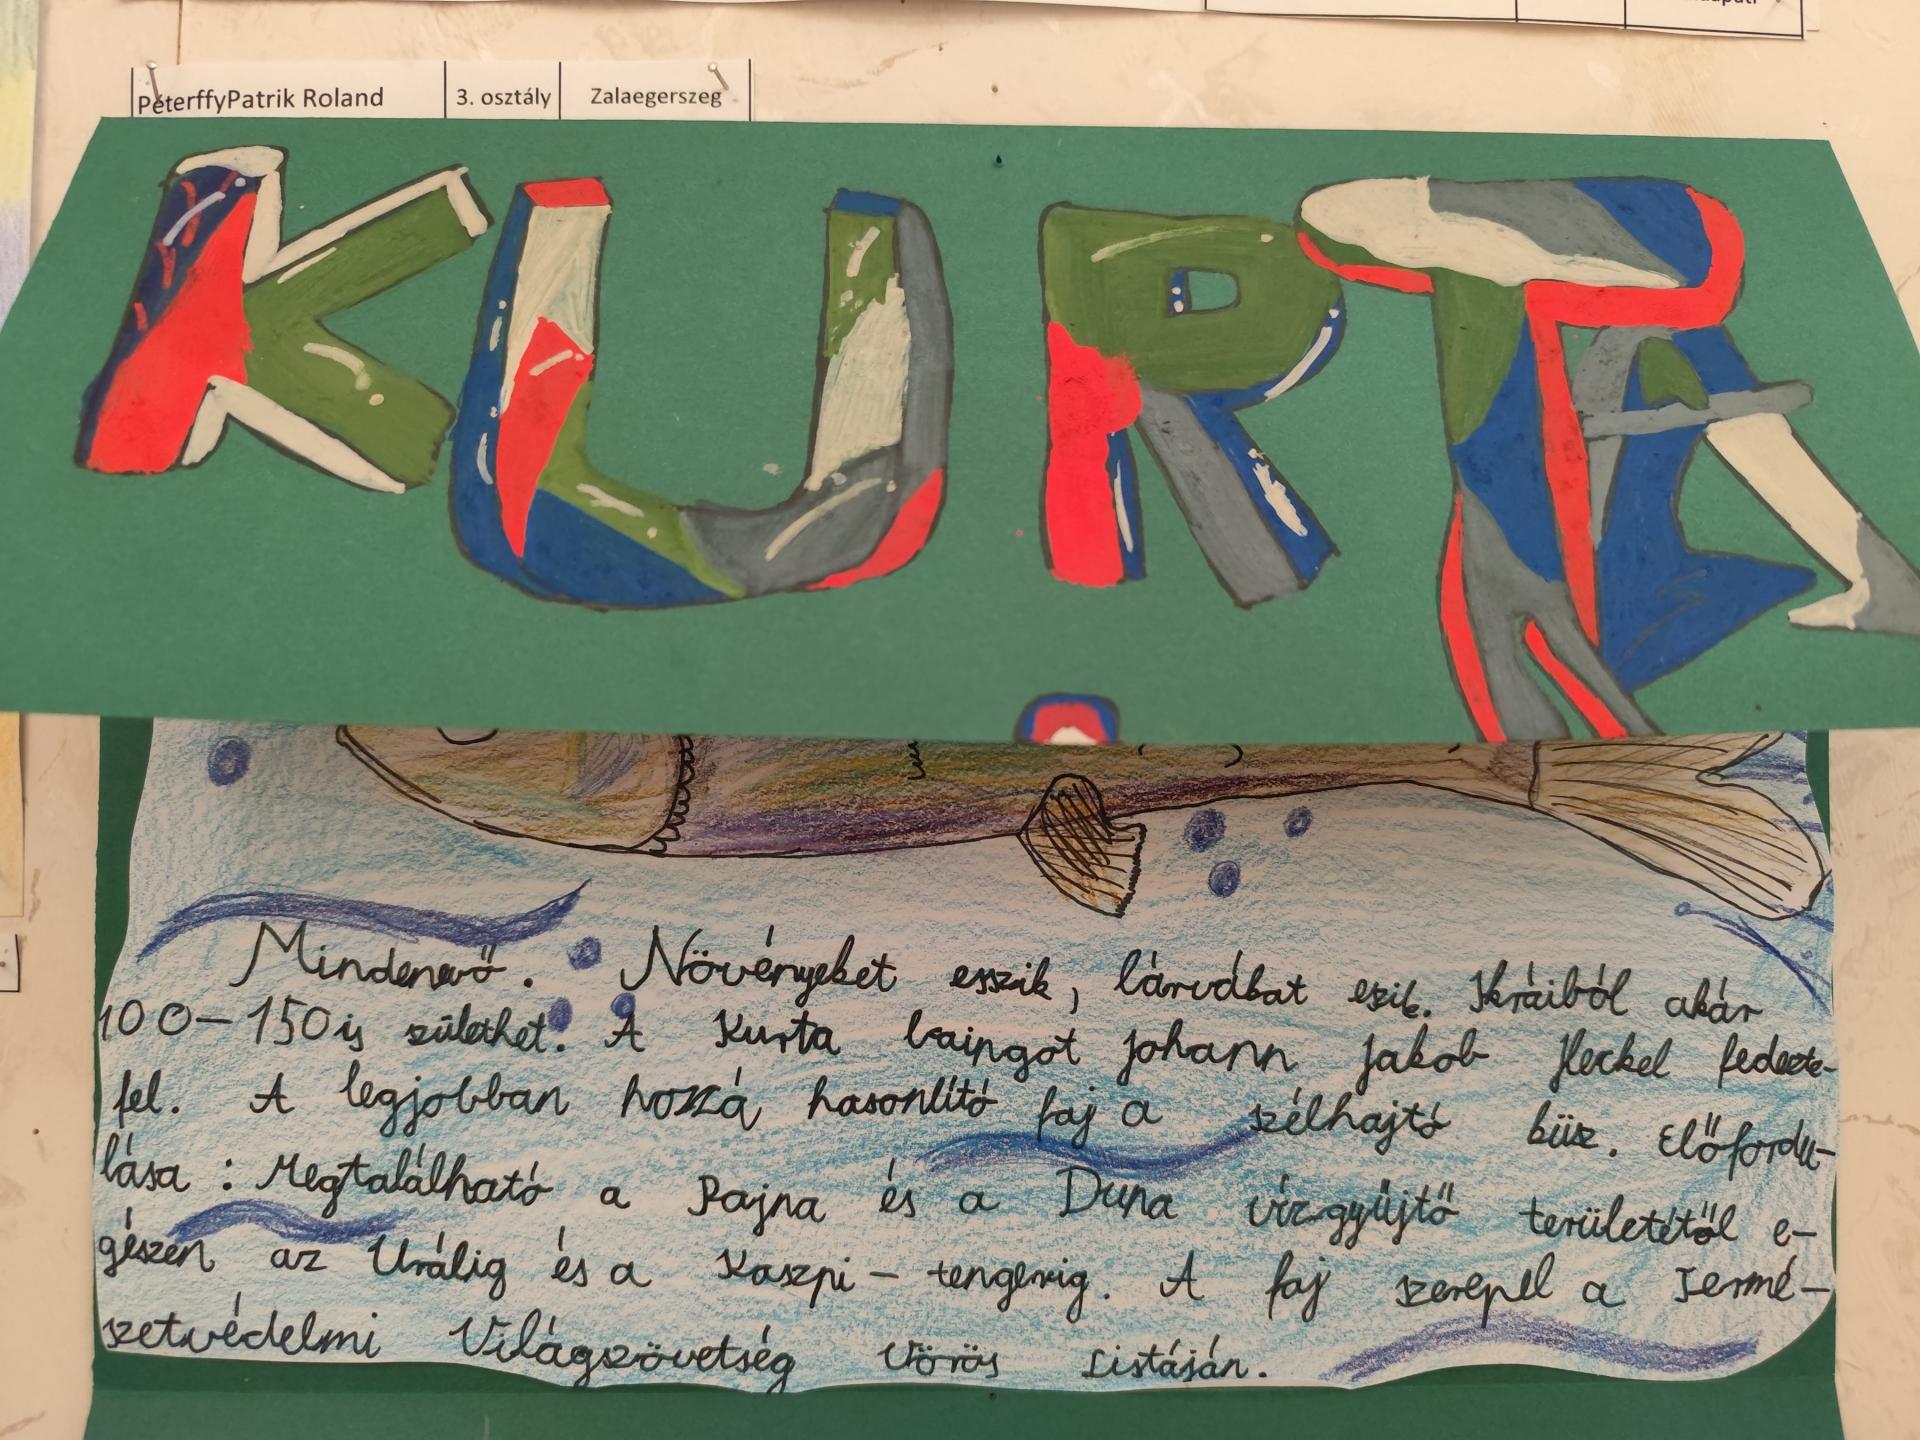 PéterffyPatrik Roland 3. osztály Zalaegerszeg
KURTA
Mindenevő. Növényeket esszik, lárvákat eszik. Ikráiból akár
100-150 is születhet. A Kurta baingot Johann Jakob Heckel fedezte-
fel. A legjobban hozzá hasonlító faj a szélhajtó küsz. Előfordu-
lása: Megtalálható a Rajna és a Duna vízgyűjtő területétől e-
gészen az Urálig és a Kaszpi-tengerig. A faj szerepel a Termé-
szetvédelmi Világszövetség Vörös Listáján.